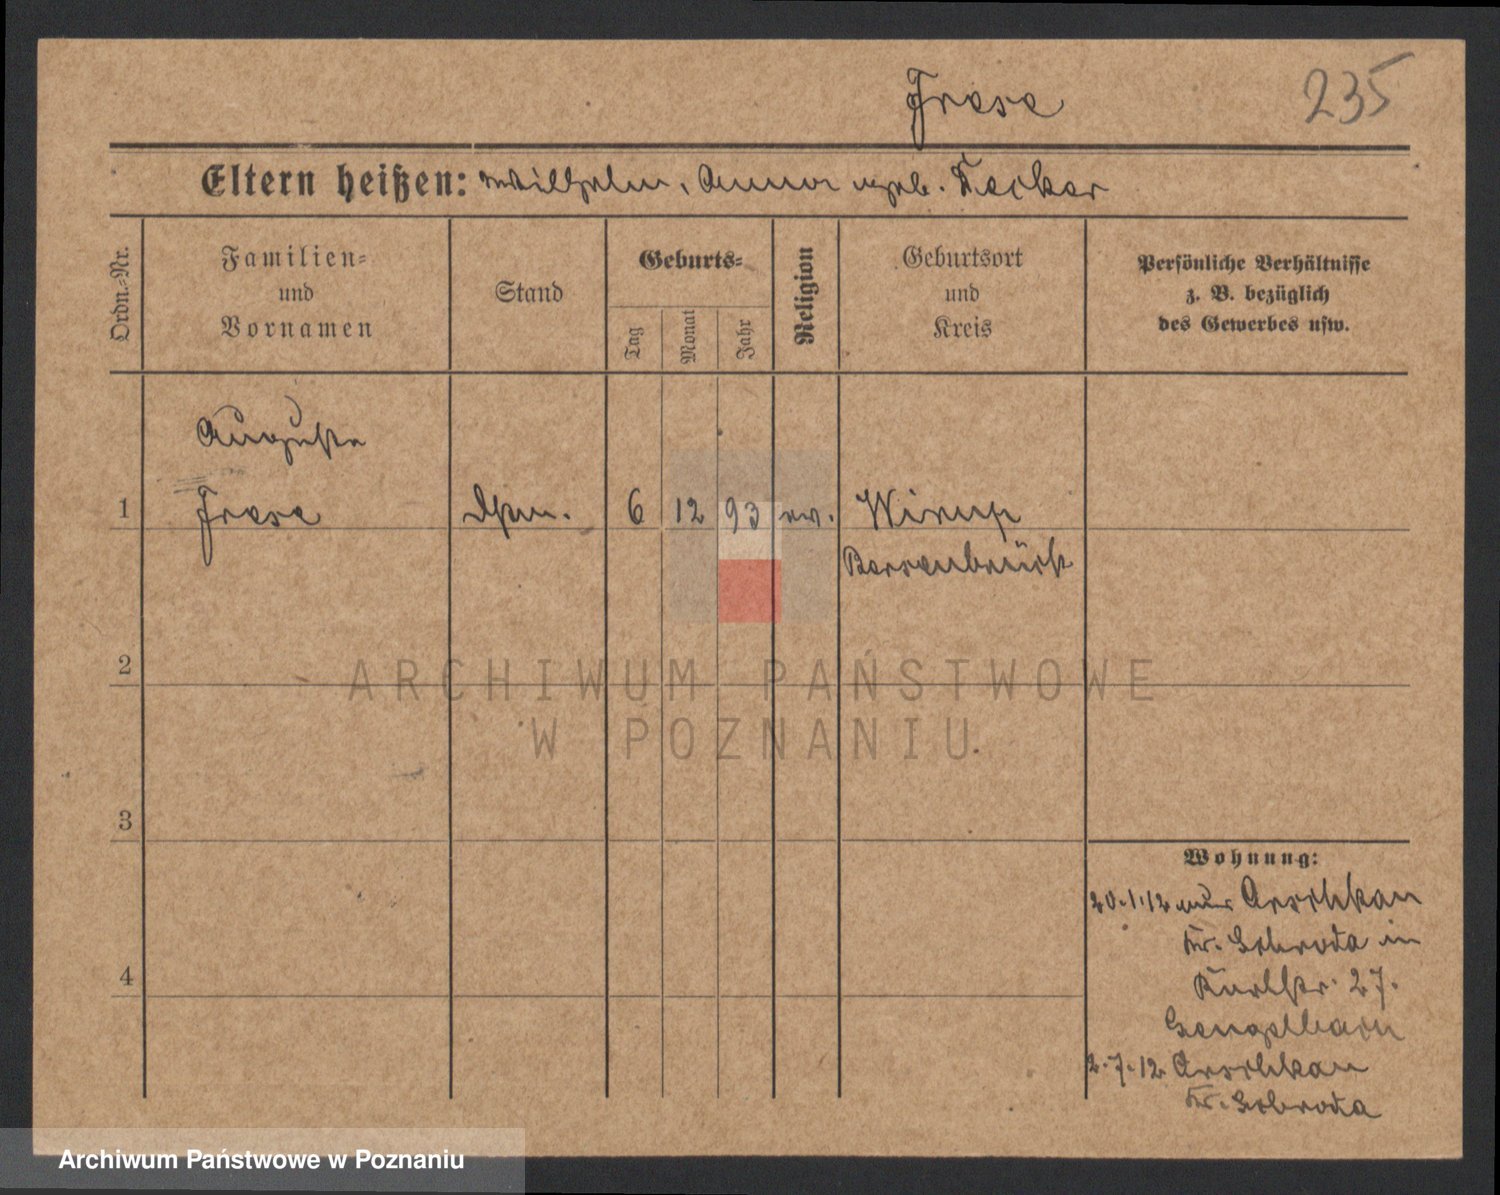 Frese
235
Eltern heißen: Wilhelm, Anna geb. Decker
Ordn.-Nr.
Familien-
und
Vornamen
Stand
Geburts-
Tag
Monat
Jahr
Religion
Geburtsort
und
Kreis
Persönliche Verhältnisse
z. B. bezüglich
des Gewerbes usw.
Auguste
1 Frese 6 12 93 ev.
Bersenbrück
2
3
4
Wohnung:
20.1.12 aus
Kr. Schroda in
Karlstr. 27.
2.7.12
Kr. Schroda
ARCHIWUM PAŃSTWOWE
W POZNANIU
Archiwum Państwowe w Poznaniu